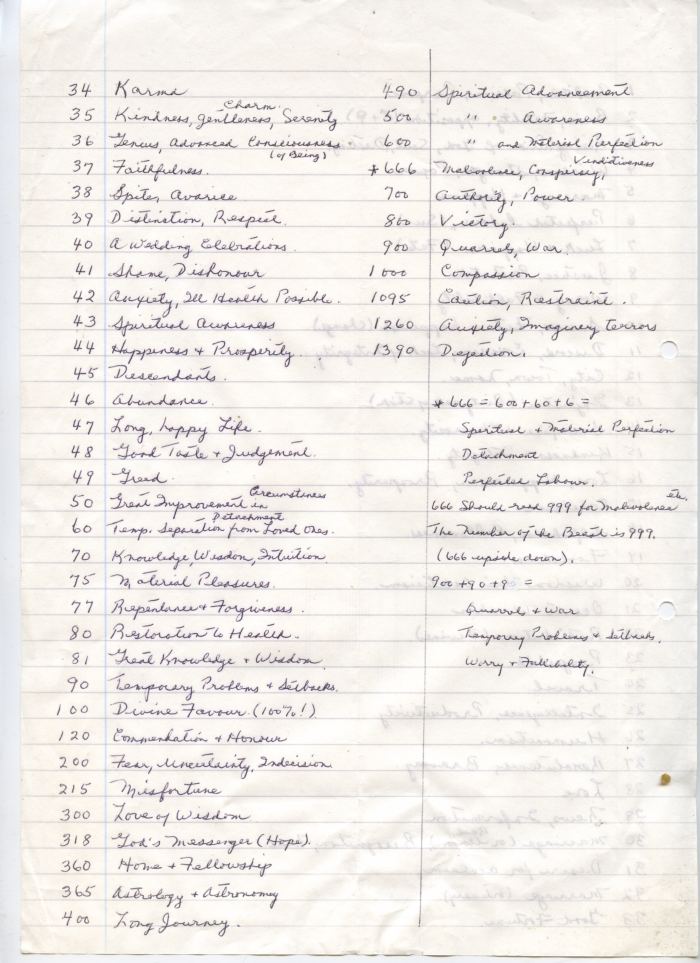 34 Karma
35 Kindness, gentleness, Charm, Serenity
36 Genius, Advanced Consciousness (of Being)
37 Faithfulness.
38 Spite, Avarice
39 Distinction, Respect.
40 A Wedding Celebrations.
41 Shame, Dishonour
42 Anxiety, Ill Health Possible.
43 Spiritual Awareness
44 Happiness + Prosperity.
45 Descendants.
46 Abundance.
47 Long, happy Life.
48 Good Taste + Judgement.
49 Greed.
50 Great Improvement in Circumstances
60 Temp. Separation Detachment from Loved Ones.
70 Knowledge, Wisdom, Intuition
75 Material Pleasures.
77 Repentance + Forgiveness.
80 Restoration to Health.
81 Great Knowledge + Wisdom
90 Temporary Problems + Setbacks.
100 Divine Favour. (100%!)
120 Commendation + Honour
200 Fear, Uncertainty, Indecision
215 Misfortune
300 Love of Wisdom
318 God's Messenger (Hope).
360 Home + Fellowship
365 Astrology + Astronomy
400 Long Journey.
490 Spiritual Advancement
500 " Awareness
600 " and Material Perfection
*666 Malevolence, Conspiracy, Vindictiveness
700 Authority, Power
800 Victory.
900 Quarrels, War.
1000 Compassion
1095 Caution, Restraint.
1260 Anxiety, Imaginery terrors
1390 Dejection.
* 666 = 600+60+6 =
Spiritual + Material Perfection
Detachment
Perfected Labour.
666 Should read 999 for Malevolence etc.
The Number of the Beast is 999.
(666 upside down).
900+90+9 =
Quarrels + War
Temporary Problems + Setbacks.
Worry + Fallibility.